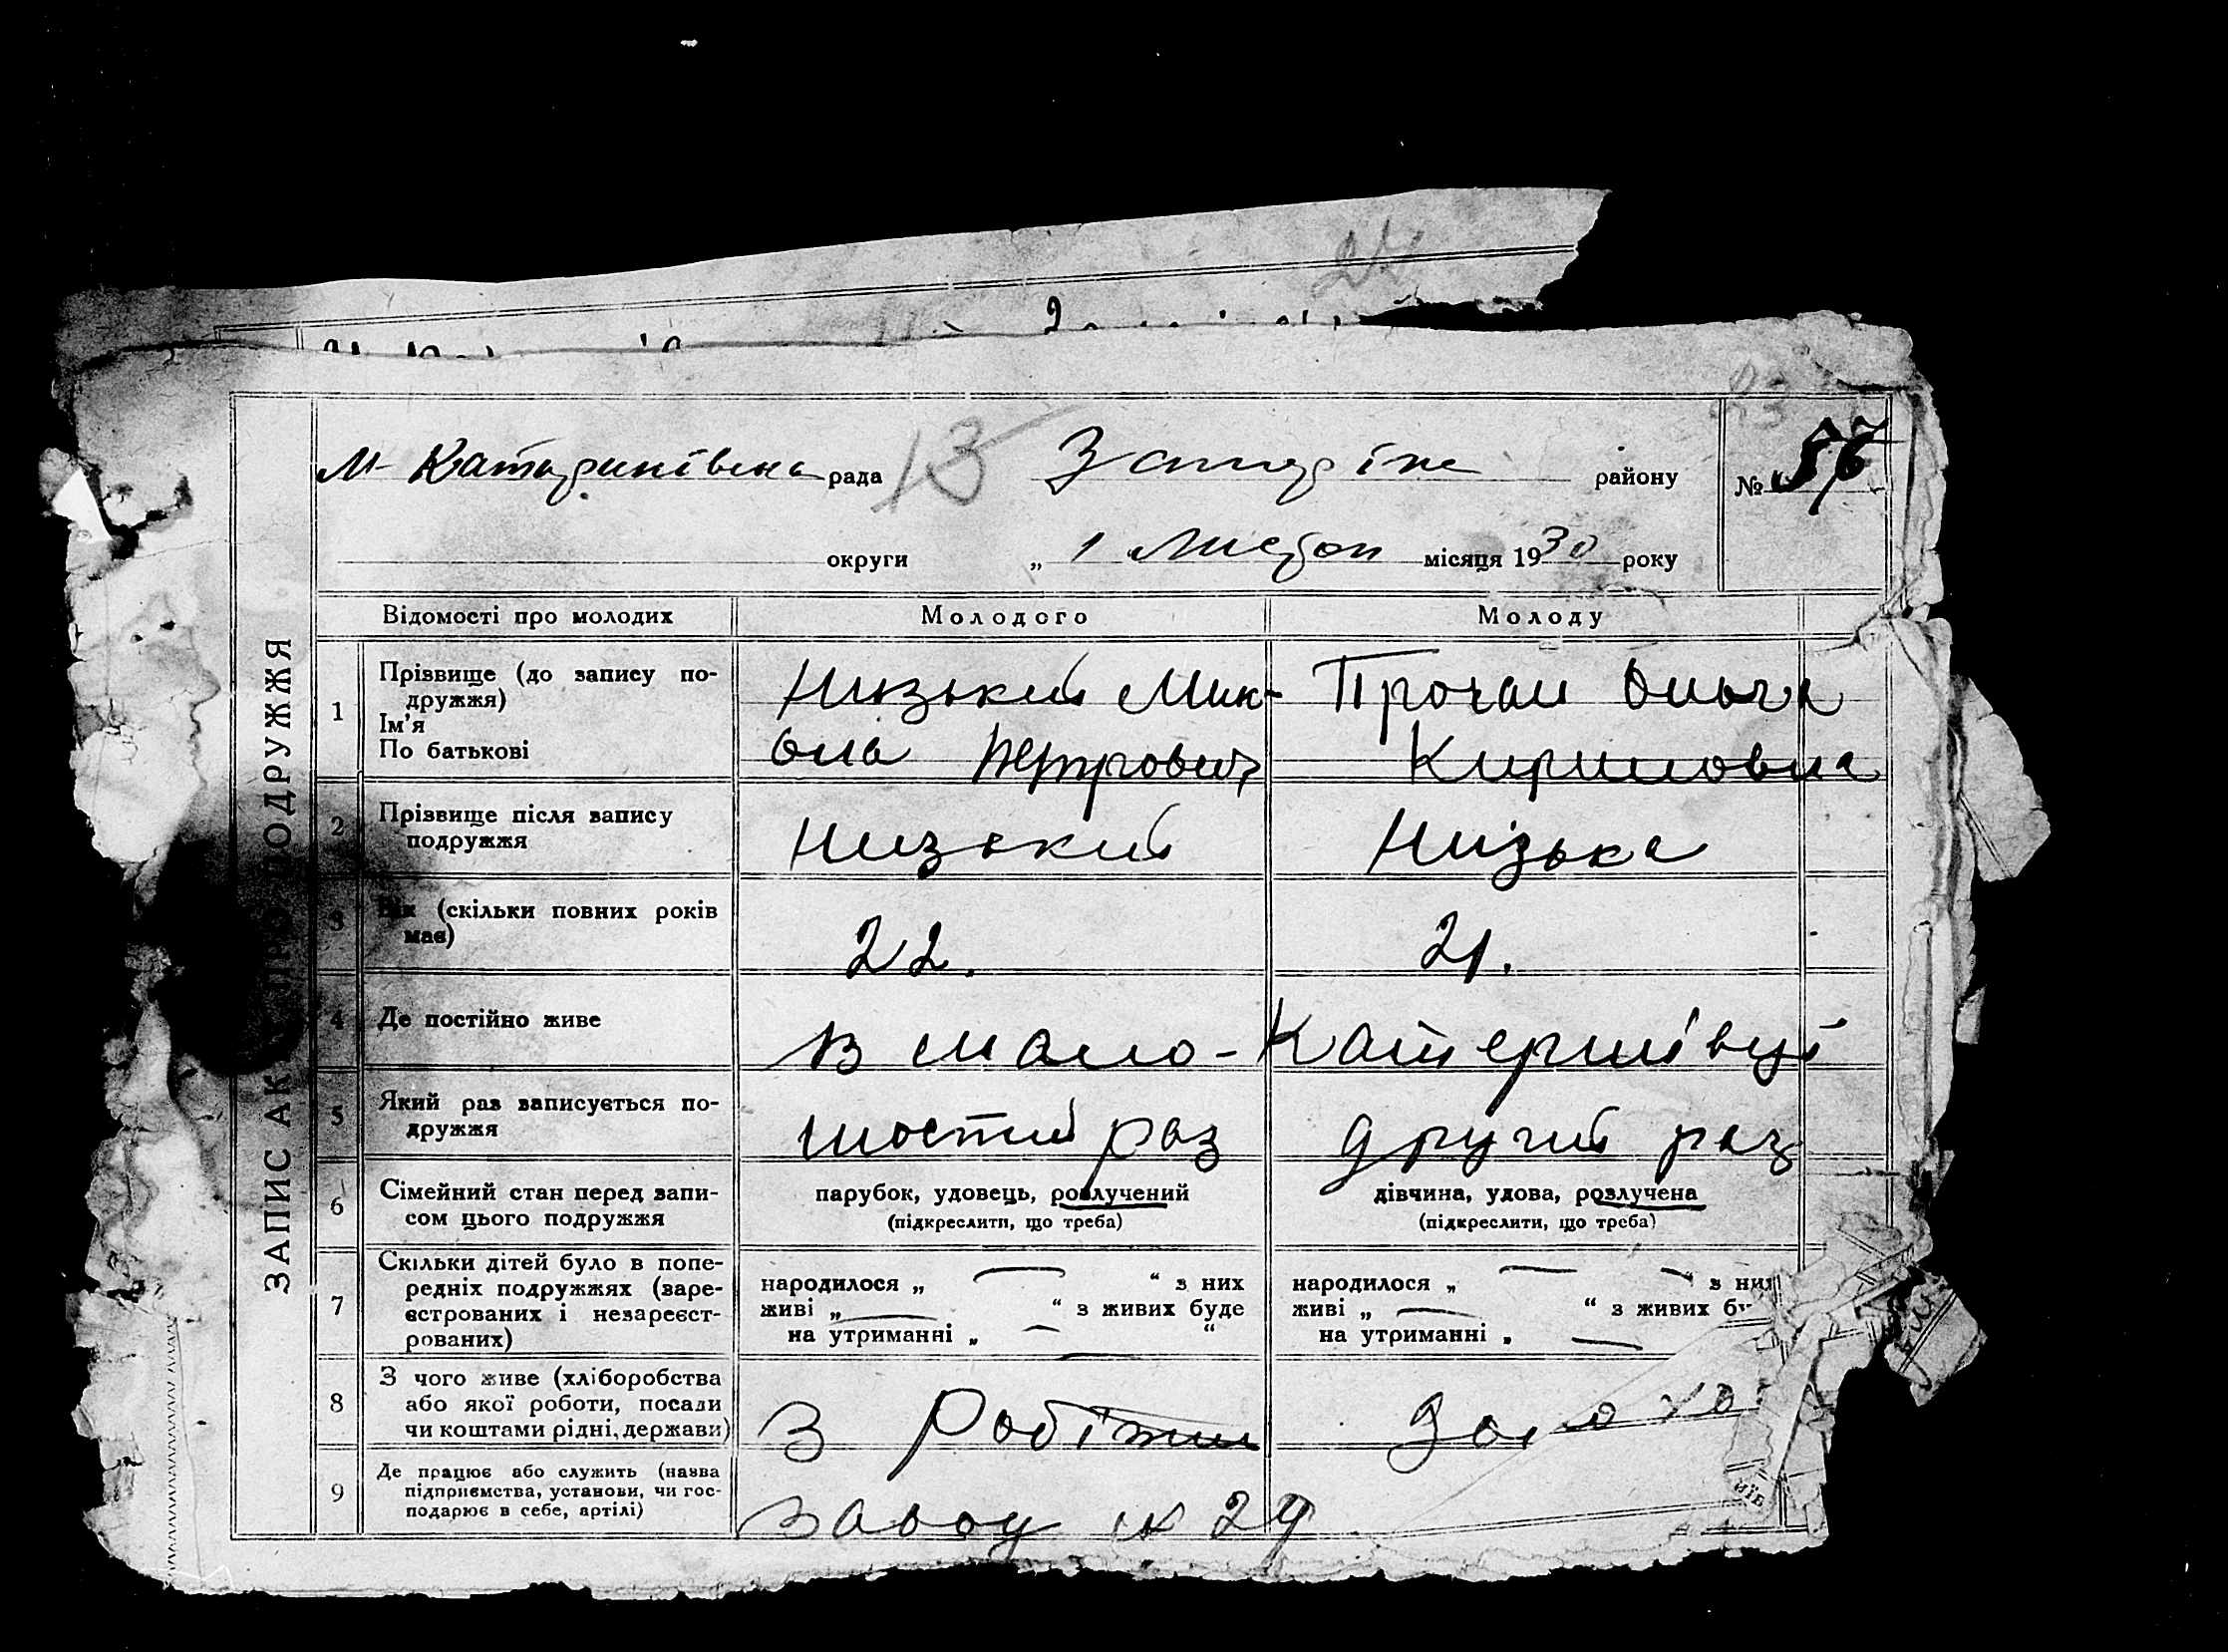 ЗАПИС АК ПРО ПОДРУЖЖЯ
М-Катеринівська рада 13 Запоріж району № 57
округи „ 1 Листоп місяця 1930 року
Відомості про молодих Молодого Молоду
1 Прізвище (до запису по-
дружжя)
Ім'я
По батькові
Низький Мик-
ола Петрович
Прочан Ольга
Кириловна
2 Прізвище після запису
подружжя
Низький Низька
3 Вік (скільки повних років
має)
22. 21.
4 Де постійно живе
в мало-Катеринівці
5 Який раз записується по-
дружжя
шостий раз другий раз
6 Сімейний стан перед запи-
сом цього подружжя
парубок, удовець, розлучений
(підкреслити, що треба)
дівчина, удова, розлучена
(підкреслити, що треба)
7 Скільки дітей було в попе-
редніх подружжях (заре-
єстрованих і незареєст-
рованих)
народилося „ — “ з них
живі „ — “ з живих буде
на утриманні „ — “
народилося „ — “ з них
живі „ — “ з живих бу
на утриманні „ —
8 З чого живе (хліборобства
або якої роботи, посади
чи коштами рідні, держави)
З Робітни
9 Де працює або служить (назва
підприємства, установи, чи гос-
подарює в себе, артілі)
Заводу 29